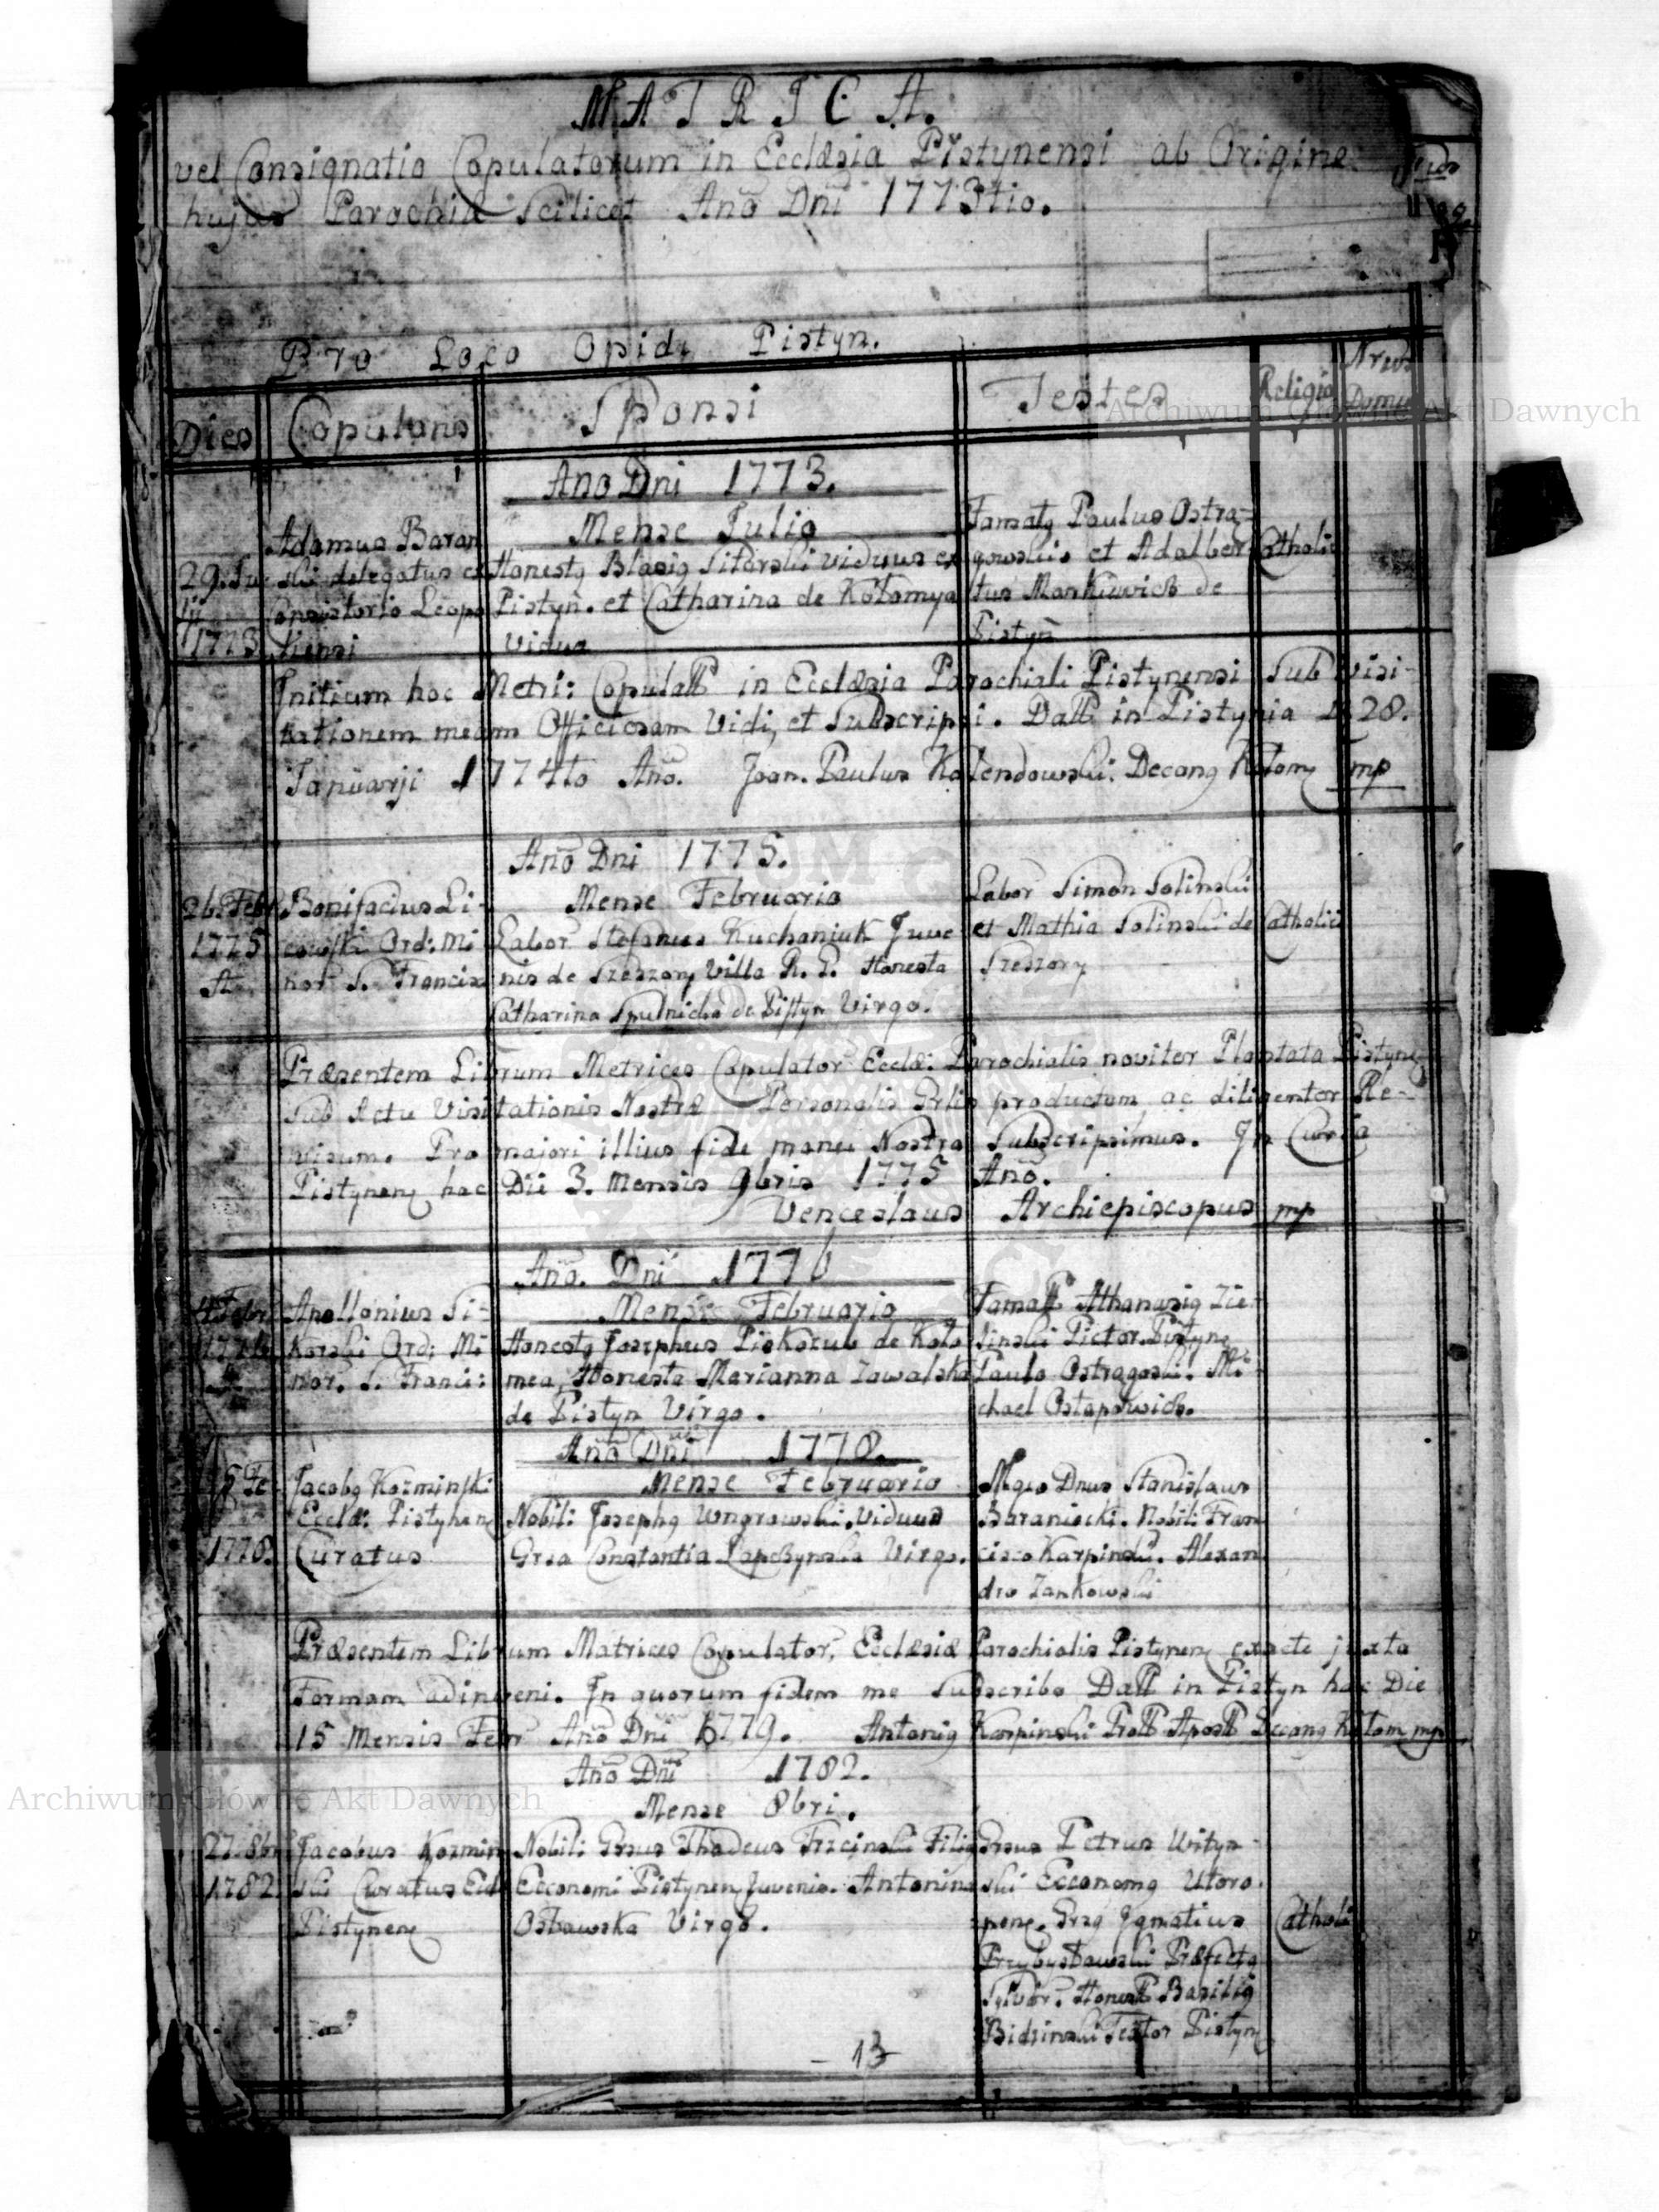 MATRICA.
vel Consignatio Copulatorum in Ecclæsia Pistynensi ab Origine
hujus Parochiæ Scilicet Anō Dnī 1773tio.
Pro Loco Opidi Pistyn.
Dies Copulans Sponsi Testes Religio Nrus Domus
Año Dni 1773.
Mense Julio
29. Julij 1773
Adamus Baran
ski delegatus ex
Consistorio Leopo
liensi
Honestg Blasig Sitarski viduus ex
Pistyn. et Catharina de Kołomya
Vidua
Famatg Paulus Ostrą-
gowskis et Adalber
tus Mankiwicz de
Pistyn
Catholici
Initium hoc Metri: Copulatt in Ecclæsia Parochiali Pistynensi Sub Visi-
tationem meam Officiosam Vidi, et Subscripsi. Datt in Pistynia D. 28.
Januarji 1774to Año. Joan. Paulus Kalendowski. Decang Kołomy mp
Año Dni 1775.
Mense Februario
26. Feb
1775
Bonifacius Li-
cowski Ord: Mi
nor S. Francis
Labor Stefanus Kuchaniuk Juve
nis de Szeszory Villa R. P. Honesta
Catharina Spulnicka de Pistyn Virgo.
Labor Simon Solinski
et Mathia Solinski de
Szeszory
Catholici
Præsentem Librum Metrices Copulator Ecclæ: Parochialis noviter Plantata Pistyneng
Sub Actu Visitationis Nostræ Personalis Grlis productum ac diligenter Re-
visum. Pro majori illius fide manu Nostra Subscripsimus. In Curia
Pistyneng hac Die 3. Mensis 9bris 1775 Año.
Venceslaus Archiepiscopus mp
Año. Dni 1776
Mense Februario
4 Febr
1776
Apollonius Si-
korski Ord: Mi
nor. S. Franci:
Honestg Josephus Piskozub de Koło
mea, Honesta Marianna Zowalska
de Pistyn Virgo.
Famatt Athanasig Zie
linski Pictor Pistyng
Paulo Ostrągoski. Mi-
chael Ostapowicz.
Año Dni 1778.
Mense Februario
15 Fe-
1778.
Jacobg Koźminski
Ecclæ: Pistyneng
Curatus
Nobil: Josephg Wngrowski. viduus
Grsa Constantia Łapczynska Virgo.
Mgco Dnus Stanislaus
Baraniecki. Nobil: Fran
cisco Karpinski. Alexan
dro Jankowski
Præsentem Librum Matrices Copulator, Ecclæsiæ Parochialis Pistyneng exacte juxta
Formam adinveni. In quorum fidem me Subscribo Datt in Pistyn hac Die
15 Mensis Febr Año Dni 1779. Antonig Karpinski Prott Apostt Decang Kołom mp
Año Dni 1782.
Mense 8bri.
27 8br
1782
Jacobus Kozmin
ski Curatus Eccl
Pistyneng
Nobil: Grsus Thadeus Trzcinski Filig
Economi Pistyneng Juvenis. Antonina
Ostawska Virgo.
Grsus Petrus Wityn-
ski Economg Utoro
peng. Grsg Ignatius
Przybysławski Præfectg
Sylvar. Honestt Basilig
Bidzinski Textor Pistyng
Catholi
- 13
Archiwum Główne Akt Dawnych
Archiwum Główne Akt Dawnych